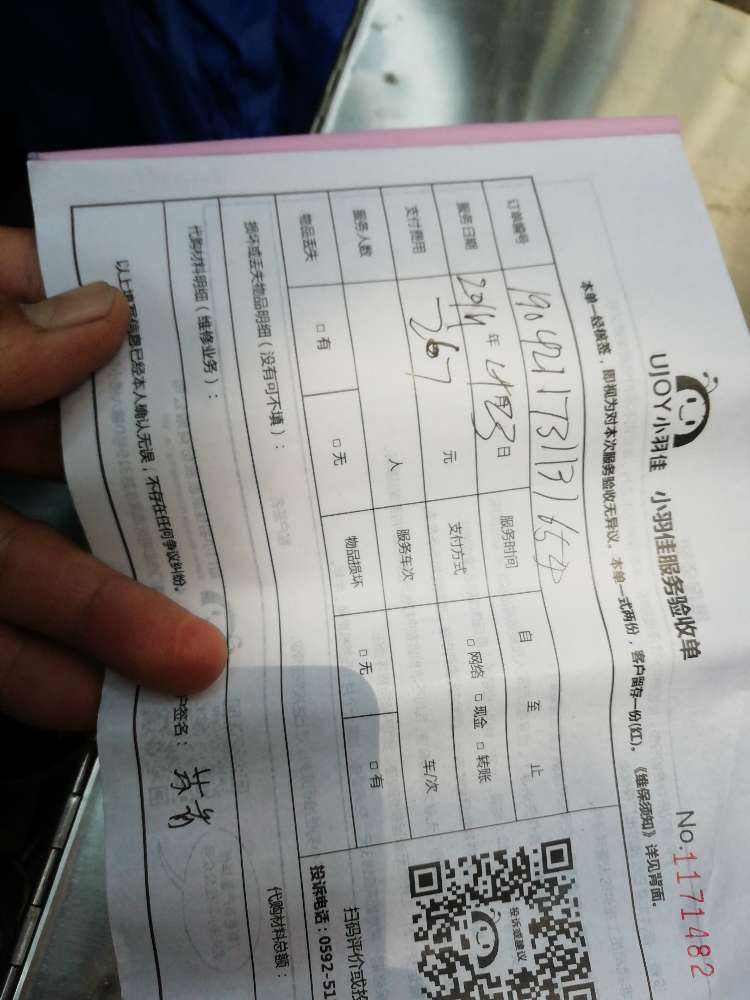 UJOY小羽佳 小羽佳服务验收单 No.1171482
本单一经核签，即视为对本次服务验收无异议。本单一式两份，客户留存一份(红)。《维保须知》详见背面。
订单编号
服务日期 2019 年 4月23 日 服务时间 自 至 止
支付费用 267 元 支付方式 □ 网络 □ 现金 □ 转账
服务人数 人 服务车次 车/次
物品丢失 □ 有 □ 无 物品损坏 □ 无 □ 有
损坏或丢失物品明细（没有可不填）：
代购材料明细（维修业务）： 代购材料总额：
以上填写信息已经本人确认无误，不存在任何争议纠纷。 户签名：
投诉或建议
扫码评价或投
投诉电话：0592-51